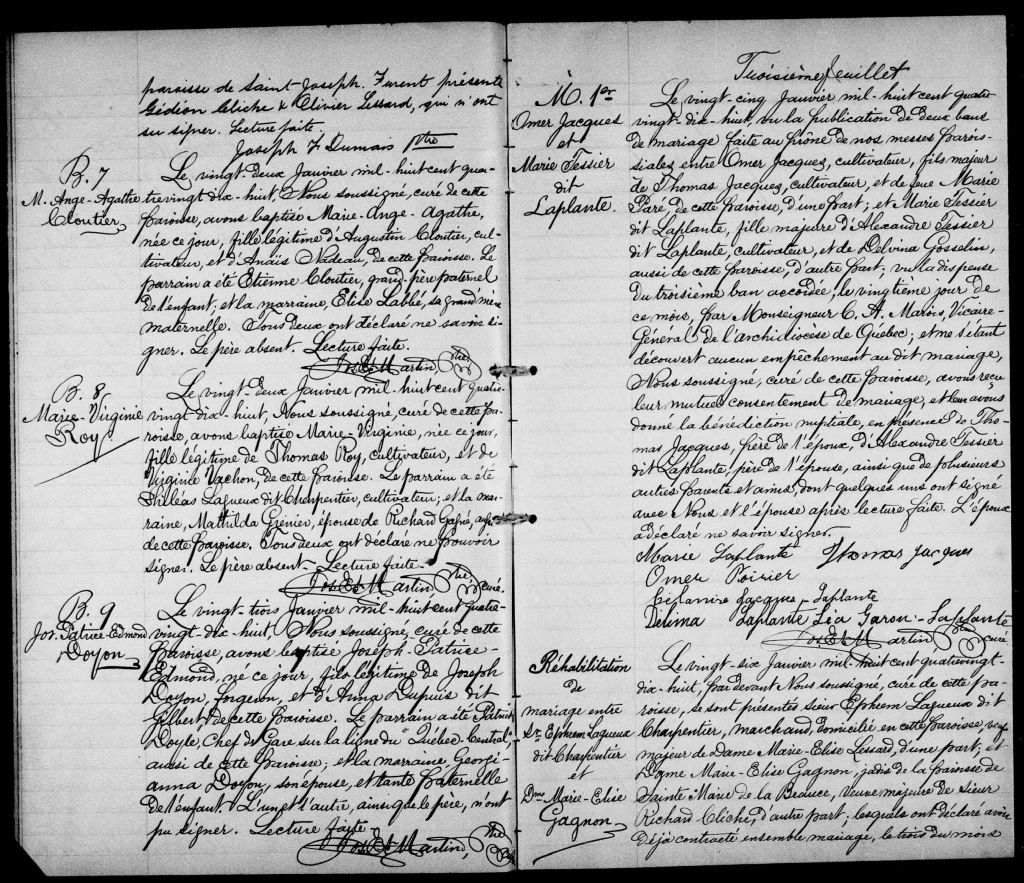 paroisse de Saint Joseph. Furent présents
Gédéon Cliche & Olivier Lessard, qui n'ont
su signer. Lecture faite.
Joseph F Dumais Ptre
B. 7
M. Ange-Agathe
Cloutier
Le vingt-deux Janvier mil-huit cent qua-
trevingt dix-huit, Nous soussigné, curé de cette
paroisse, avons baptisé Marie-Ange-Agathe,
née ce jour, fille légitime d'Augustin Cloutier, cul-
tivateur, et d'Anaïs Nadeau, de cette paroisse. Le
parrain a été Etienne Cloutier, grand-père paternel
de l'enfant; et la marraine, Elise Labbé, sa grand'mère
maternelle. Tous deux ont déclaré ne savoir si-
gner. Le père absent. Lecture faite.
Jos. Et. Martin, Ptre
B. 8
Marie-Virginie
Roy
Le vingt-deux Janvier mil-huit cent quatre-
vingt dix-huit, Nous soussigné, curé de cette pa-
roisse, avons baptisé Marie-Virginie, née ce jour,
fille légitime de Thomas Roy, cultivateur, et de
Virginie Vachon, de cette paroisse. Le parrain a été
Philéas Lagueux dit Charpentier, cultivateur; et la mar-
raine, Mathilda Grenier, épouse de Richard Gagné, aussi
de cette paroisse. Tous deux ont déclaré ne pouvoir
signer. Le père absent. Lecture faite.
Jos. Et. Martin, Ptre curé
B. 9
Jos. Patrice-Edmond
Doyon
Le vingt-trois Janvier mil-huit cent quatre-
vingt-dix-huit, Nous soussigné, curé de cette
paroisse, avons baptisé Joseph-Patrice-
Edmond, né ce jour, fils légitime de Joseph
Doyon, forgeron, et d'Anna Dupuis dit
Gilbert, de cette paroisse. Le parrain a été Patrick
Doyle, Chef de Gare sur la ligne du "Québec-Central",
aussi de cette paroisse; et la marraine, Georgi-
anna Doyon, son épouse, et tante paternelle
de l'enfant. L'un et l'autre, ainsi que le père, n'ont
pu signer. Lecture faite.
Jos. Et. Martin, Ptre
Troisième feuillet
M. 1er
Omer Jacques
et
Marie Tessier
dit
Laplante.
Le vingt-cinq Janvier mil-huit cent quatre-
vingt-dix-huit, vu la publication de deux bans
de mariage faite au prône de nos messes parois-
siales entre Omer Jacques, cultivateur, fils majeur
de Thomas Jacques, cultivateur, et de feue Marie
Paré, de cette paroisse, d'une part; et Marie Tessier
dit Laplante, fille majeure d'Alexandre Tessier
dit Laplante, cultivateur, et de Delvina Gosselin,
aussi de cette paroisse, d'autre part; vu la dispense
du troisième ban accordée, le vingtième jour de
ce mois, par Monseigneur C. A. Marois, Vicaire-
Général de l'archidiocèse de Québec; et ne s'étant
découvert aucun empêchement au dit mariage,
Nous soussigné, curé de cette paroisse, avons reçu
leur mutuel consentement de mariage, et leur avons
donné la bénédiction nuptiale, en présence de Tho-
mas Jacques, frère de l'époux, d'Alexandre Tessier
dit Laplante, père de l'épouse, ainsi que de plusieurs
autres parents et amis, dont quelques uns ont signé
avec Nous et l'épouse après lecture faite. L'époux
a déclaré ne savoir signer.
Marie Laplante Thomas Jacques
Omer Poirier
Jacques-Laplante
Delima Laplante Léa Garon-Laplante
Jos. Et. Martin, Ptre curé
Réhabilitation
de
mariage entre
Sr. Ephrem Lagueux
dit Charpentier
et
Dme Marie-Elise
Gagnon
Le vingt-six Janvier mil-huit cent quatrevingt-
dix-huit, par devant Nous soussigné, curé de cette pa-
roisse, se sont présentés sieur Ephrem Lagueux dit
Charpentier, marchand, domicilié en cette paroisse, veuf
majeur de Dame Marie-Elise Lessard, d'une part; et
Dame Marie-Elise Gagnon, jadis de la paroisse de
Sainte Marie de la Beauce, veuve majeure de Sieur
Richard Cliche, d'autre part; lesquels ont déclaré avoir
déjà contracté ensemble mariage, le trois du mois